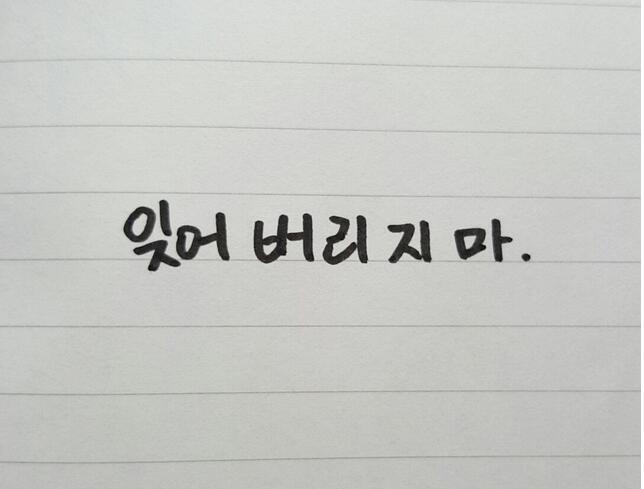 잊어 버리지 마.